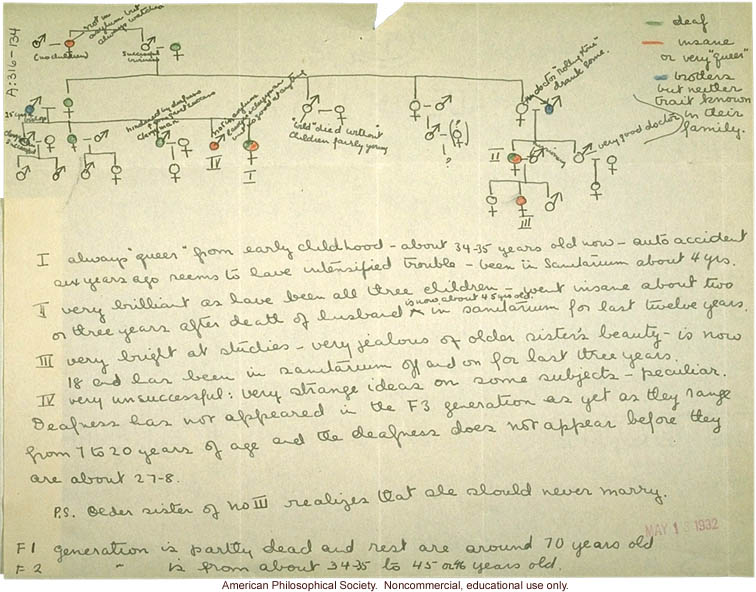 A:316-134
not in asylum but always watched
(no children)
Successful
deaf
insane or very "queer"
brothers but neither trait known in their family.
doctor
drank some.
very good doctor
hindered by deafness
Clergyman
not in asylum
"Wild" died without children fairly young
?
IV
I
II
III
I always "queer" from early childhood - about 34-35 years old now - auto accident
six years ago seems to have intensified trouble - been in Sanitarium about 4 yrs.
II very brilliant as have been all three children - went insane about two
or three years after death of husband ^ is now about 45 yrs old. in sanitarium for last twelve years.
III very bright at studies - very jealous of older sister's beauty - is now
18 and has been in sanitarium off and on for last three years.
IV very unsuccessful: very strange ideas on some subjects - peculiar.
Deafness has not appeared in the F3 generation as yet as they range
from 7 to 20 years of age and the deafness does not appear before they
are about 27-8.
P.S. Older sister of no III realizes that she should never marry.
MAY 1 1932
F1 generation is partly dead and rest are around 70 years old
F2 " is from about 34-35 to 45 or 46 years old.
American Philosophical Society. Noncommercial, educational use only.